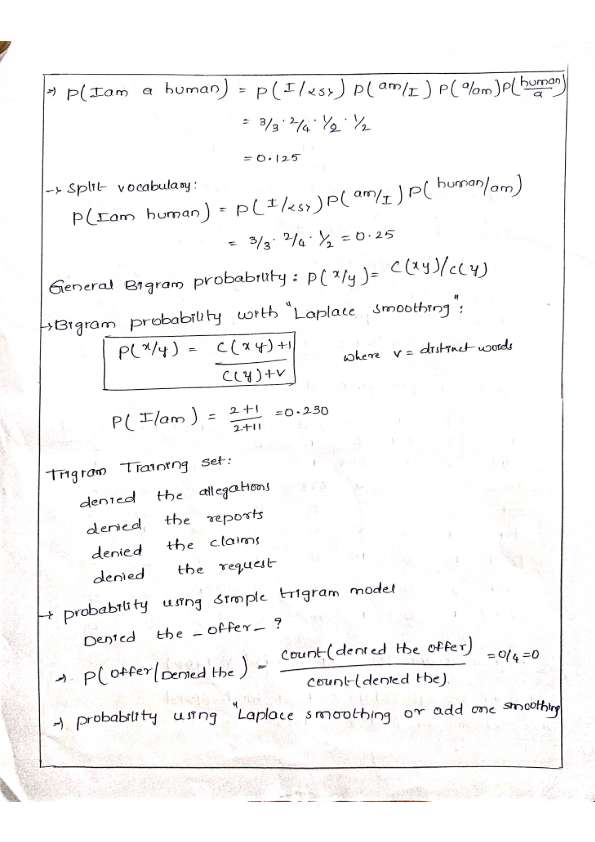 → P(I am a human) = P(I/<s>) P(am/I) P(a/am) P(human/a)
= 3/3 · 2/4 · 1/2 · 1/2
= 0.125
→ Split vocabulary:
P(I am human) = P(I/<s>) P(am/I) P(human/am)
= 3/3 · 2/4 · 1/2 = 0.25
General Bigram probability: P(x/y) = C(xy)/C(y)
→ Bigram probability with "Laplace smoothing":
P(x/y) = C(xy)+1 / C(y)+V where V = distinct words
P(I/am) = 2+1 / 2+11 = 0.230
Trigram Training set:
denied the allegations
denied the reports
denied the claims
denied the request
→ probability using simple trigram model
Denied the _ offer _ ?
→ P(offer/Denied the) = count(denied the offer) / count(denied the). = 0/4 = 0
→ probability using "Laplace smoothing or add one smoothing